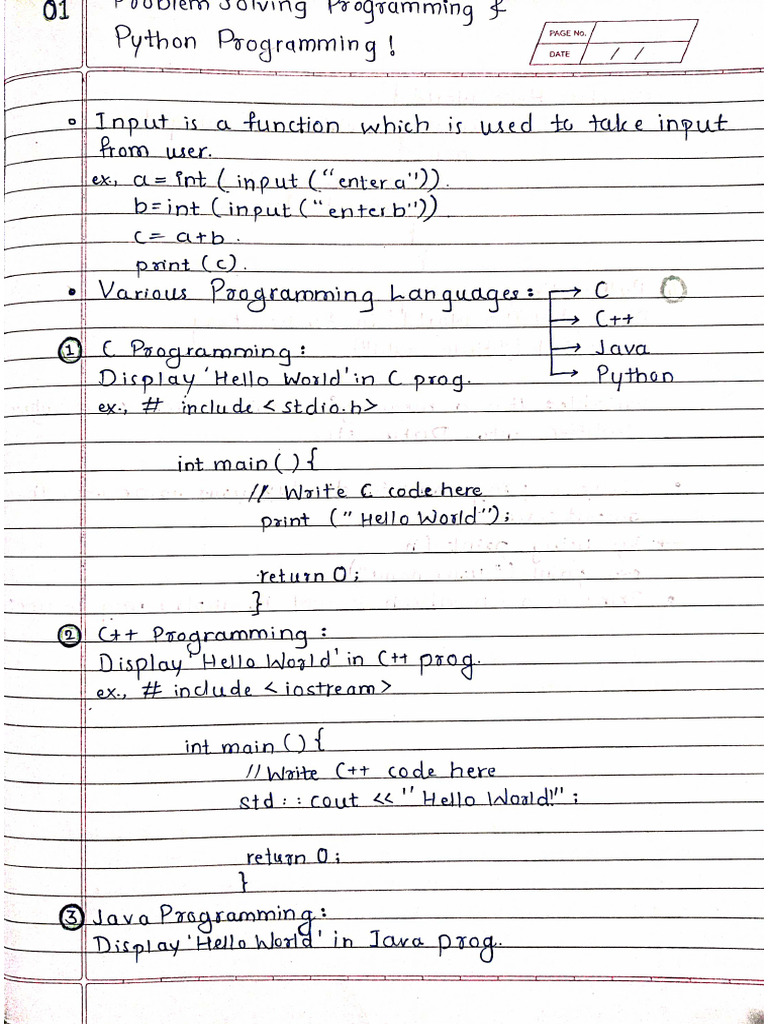 01 Problem Solving Programming &
Python Programming!
PAGE No.
DATE / /
Input is a function which is used to take input
from user.
ex., a = int (input ("enter a")).
b = int (input ("enter b"))
c = a+b.
print (c).
• Various Programming Languages: → C
→ C++
→ Java
→ Python
① C Programming:
Display 'Hello World' in C prog.
ex., # include <stdio.h>
int main () {
// Write C code here
print ("Hello World");
return 0;
}
② C++ Programming:
Display 'Hello World' in C++ prog.
ex., # include <iostream>
int main () {
// Write C++ code here
std :: cout << "Hello World!";
return 0;
}
③ Java Programming:
Display 'Hello World' in Java prog.